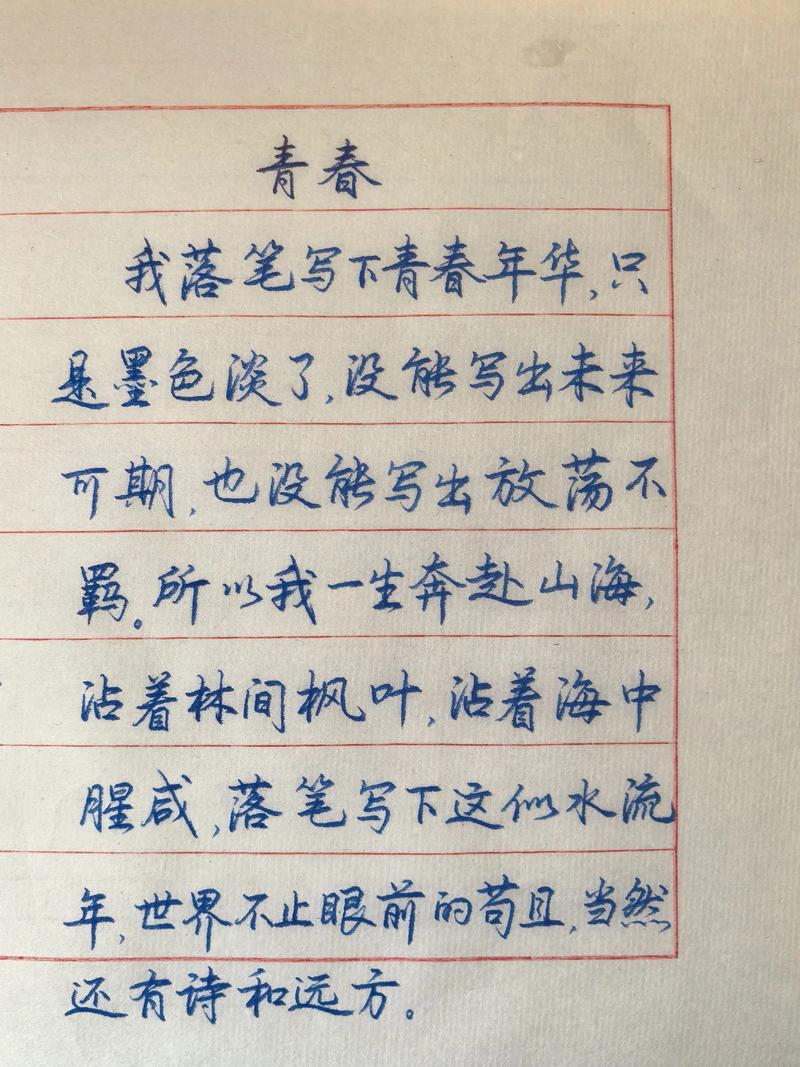 青春
我落笔写下青春年华,只
是墨色淡了,没能写出未来
可期,也没能写出放荡不
羁。所以我一生奔赴山海,
沾着林间枫叶,沾着海中
腥咸,落笔写下这似水流
年,世界不止眼前的苟且,当然
还有诗和远方。